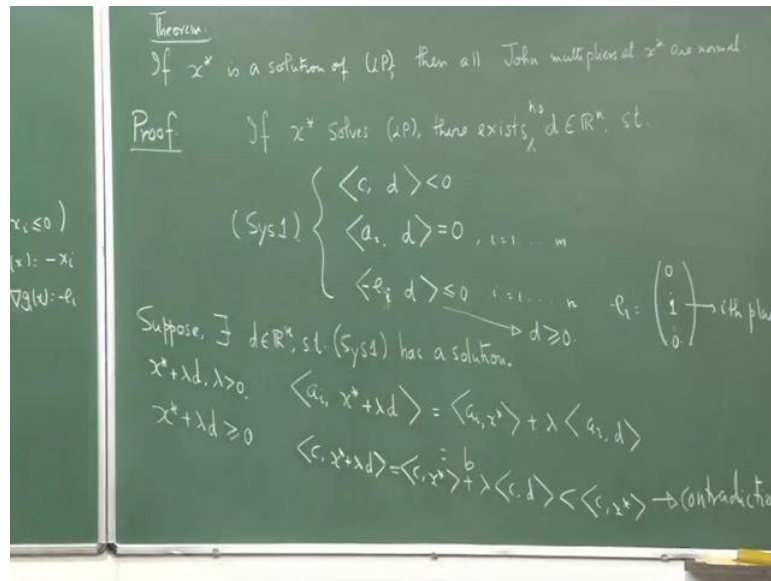 xᵢ ≤ 0 )
(x) := -xᵢ
∇g(x) := -eᵢ
Theorem.
If x* is a solution of (LP), then all John multipliers at x* are normal.
Proof. If x* solves (LP), there exists no d ∈ ℝⁿ, s.t.
(Sys1) { ⟨c, d⟩ < 0
⟨aᵢ, d⟩ = 0 , i = 1 ... m
⟨-eᵢ, d⟩ ≤ 0 i = 1 ... n eᵢ = (0 ⋮ 1 ⋮ 0) → ith place
→ d ≥ 0.
Suppose, ∃ d ∈ ℝⁿ, s.t. (Sys1) has a solution.
x* + λd, λ > 0. ⟨aᵢ, x* + λd⟩ = ⟨aᵢ, x*⟩ + λ⟨aᵢ, d⟩
x* + λd ≥ 0 = b
⟨c, x* + λd⟩ = ⟨c, x*⟩ + λ⟨c, d⟩ < ⟨c, x*⟩ → contradiction